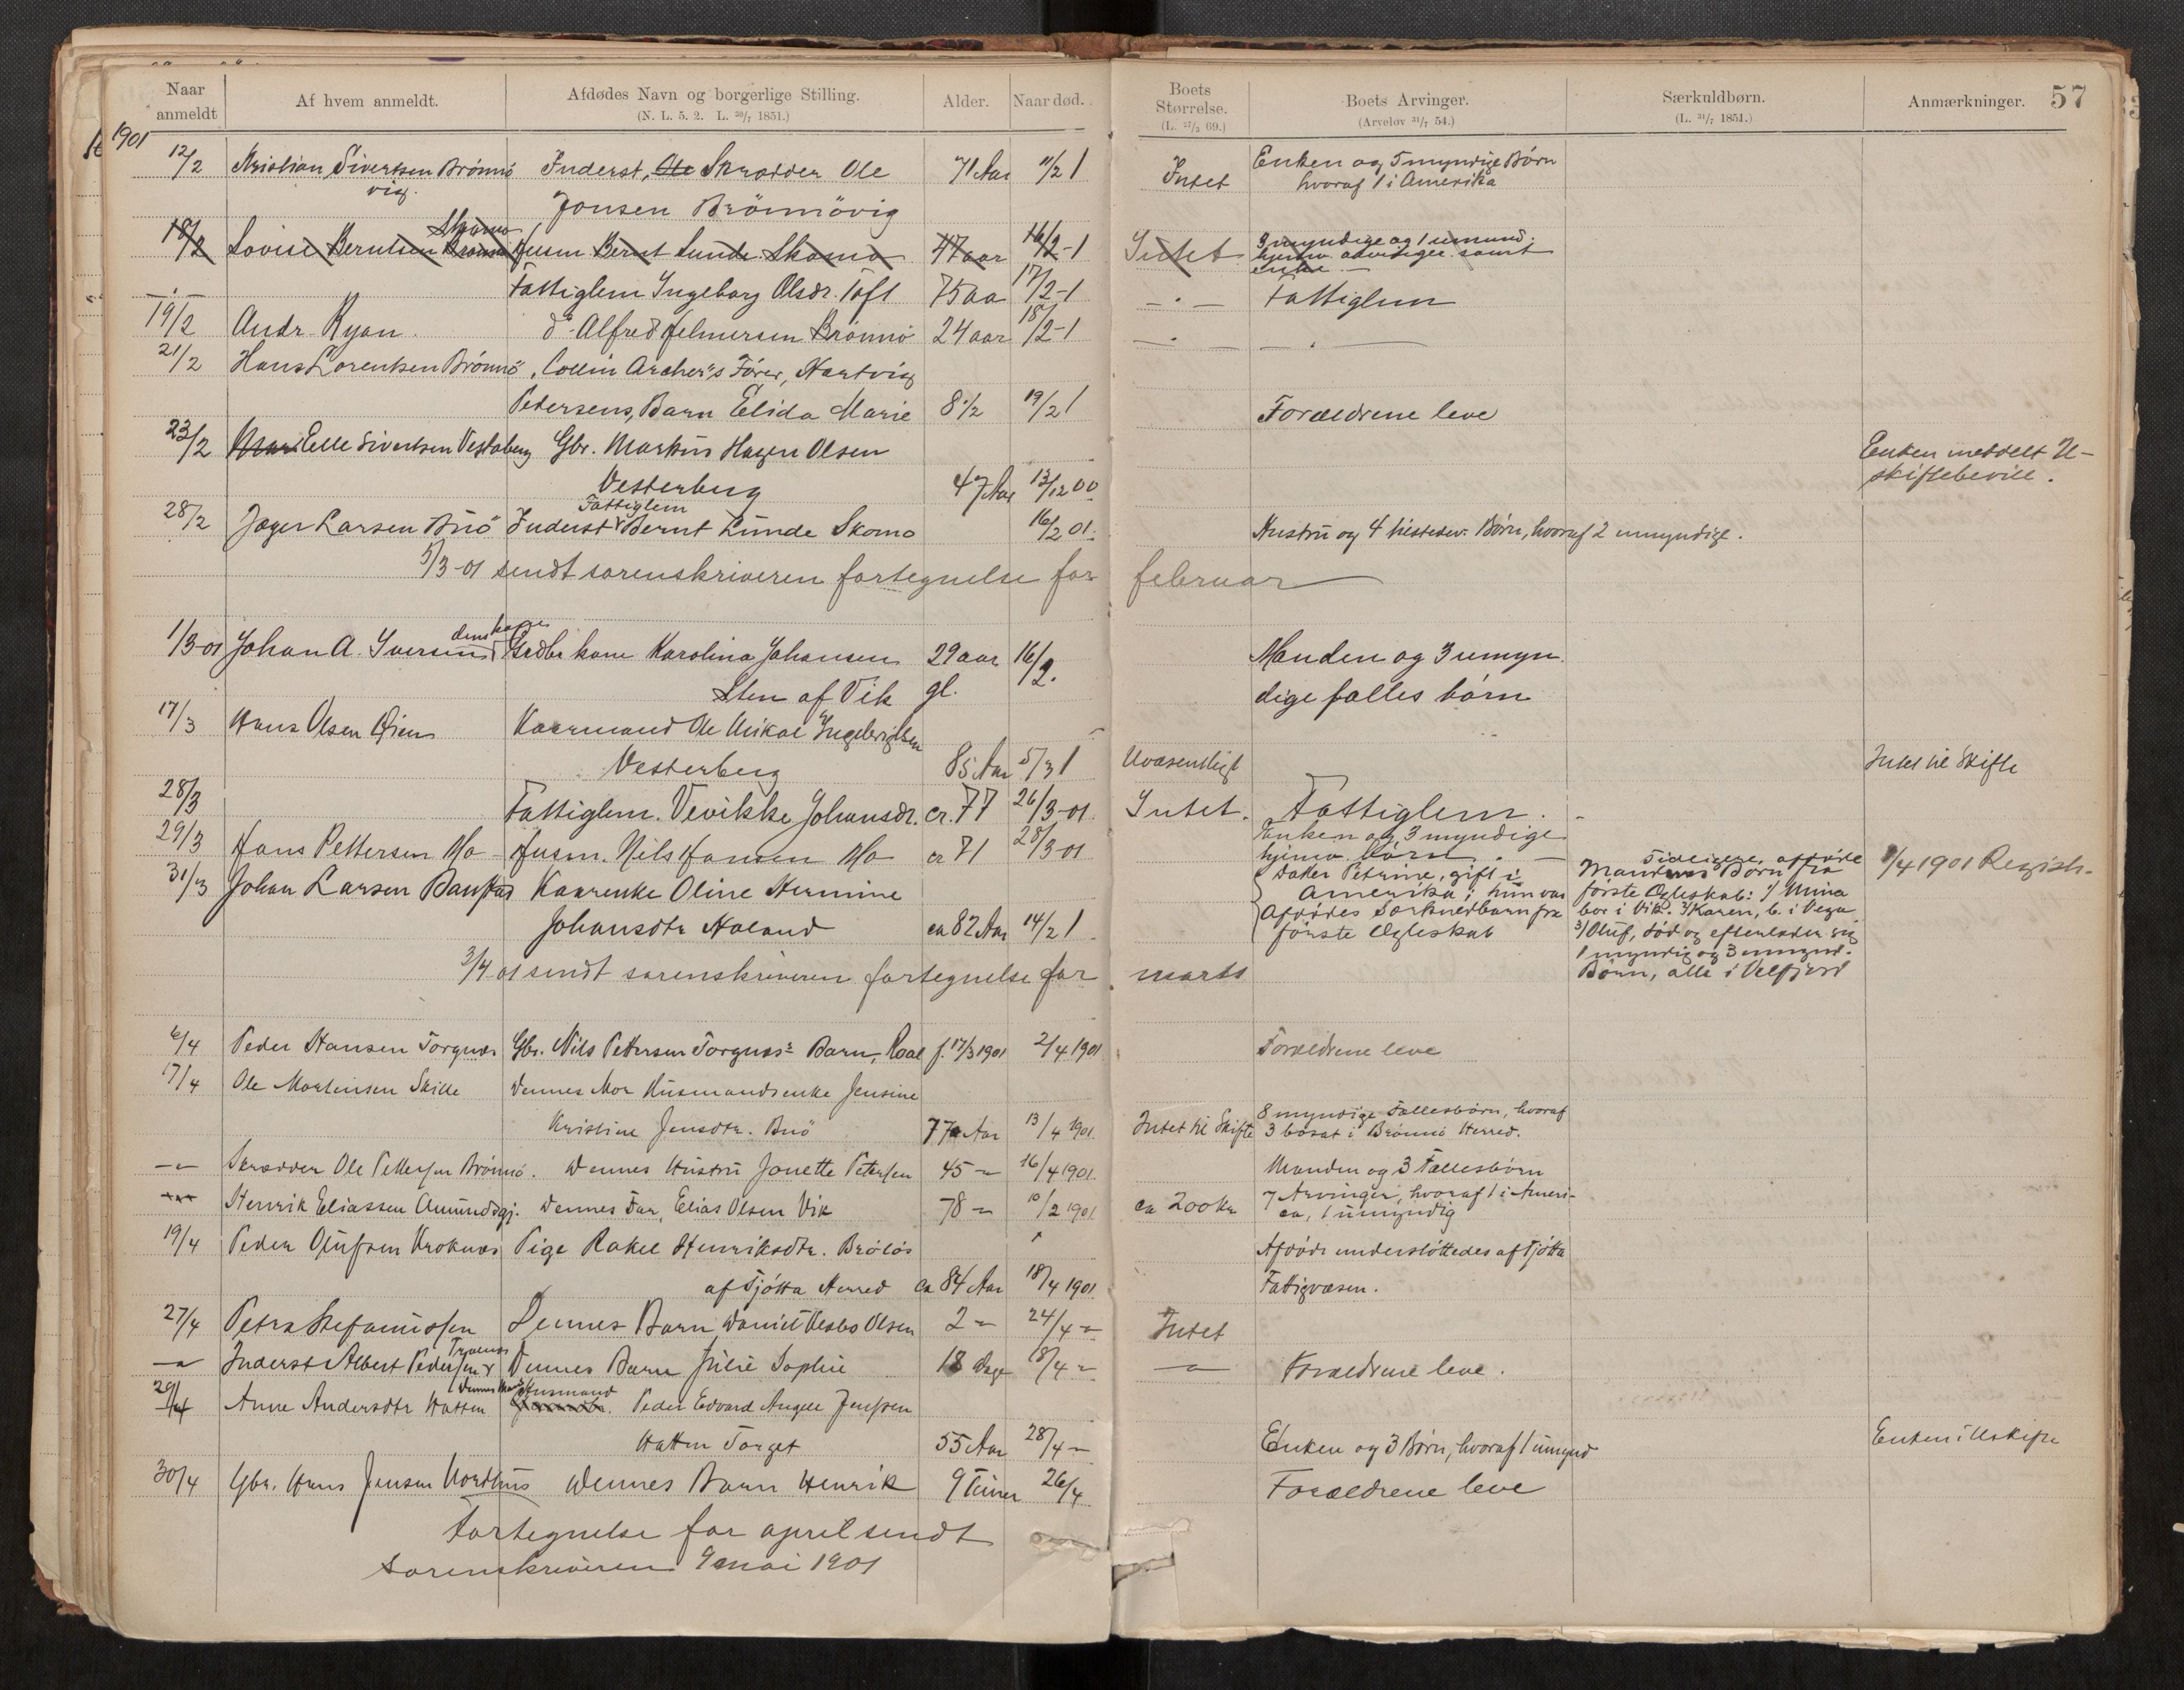 Naar anmeldt | Af hvem anmeldt. | Afdødes Navn og borgerlige Stilling. (N. L. 5. 2. L. 30/7 1851.) | Alder. | Naar død. | Boets Størrelse. (L. 27/3 69.) | Boets Arvinger. (Arvelov 31/7 54.) | Særkuldbørn. (L. 31/7 1851.) | Anmærkninger. 57
1901
12/2 Kristian Sivertsen Brønnö Inderst, Ole Skrædder Ole 71 Aar 11/2 1 Intet Enken og 5 myndige Børn
vig. Jonsen Brönnövig hvoraf 1 i Amerika
Skomo
18/2 Lovise Berntsen Brönnö Husm Bernt Lunde Skomo 47 aar 16/2-1 Intet 3 myndige og 1 umynd.
samt
enke
Fattiglem Ingeborg Olsdr. Toft 75 aa 17/2-1 -"- Fattiglem
19/2 Andr. Ryan. do Alfred Helmersen Brönnö 24 aar 18/2-1 -"- -"-
21/2 Hans Lorentsen Brönnö "Collin Archer"s Fører, Hartvig
Petersens, Barn Elida Marie 8 1/2 19/2 1 Forældrene leve
23/2 Elle Sivertsen Vestaberg Gbr. Markus Hagen Olsen Enken meddelt U-
Vesterberg 47 Aar 13/12 00 skiftebevill.
Fattiglem
28/2 Jæger Larsen Buö Inderst Bernt Lunde Skomo 16/2 01. Hustru og 4 Børn, hvoraf 2 umyndige.
5/3-01 sendt sorenskriveren fortegnelse for februar
1/3-01 Johan A. Iversen Grdbr kone Karolina Johansen 29 aar 16/2. Manden og 3 umyn.
Sten af Vik gl. dige fælles børn
17/3 Hans Olsen Öien Kaarmand Ole Nikal Ingebrigtsen
Vesterberg 85 Aar 5/3 1 Uvæsentligt Intet til Skifte
28/3 Fattiglem. Vevikke Johansdr. cr. 77 26/3-01. Intet. Fattiglem.
29/3 Hans Pettersen Mo Husm. Nils Hansen Mo cr 71 28/3-01 Enken og 3 myndige
hjemv. børn.
31/3 Johan Larsen Kaarenke Oline Hermine Datter Petrine, gift i Tidligere afdöde 9/4 1901 Registr.
Amerika; hun var Mandens Børn fra
Johansdtr Haland ca 82 Aar 14/2 1 Afdødes Særkuldbarn fra første Ægteskab: 1/ Mina
første Ægteskab bor i Vik. 2/ Karen, b. i Vega
3/ Oluf, död og efterlader sig
1 myndig og 3 umynd.
3/4 01 sendt sorenskriveren fortegnelse for marts Börn, alle i Velfjord
6/4 Peder Hansen Torgnæs Gbr. Nils Pettersen Torgnæs's Barn, Roal f. 17/3 1901 2/4 1901 Forældrene leve
17/4 Ole Martinsen Skille Dennes Mor Husmandsenke Jensine 8 myndige Fællesbörn, hvoraf
Kristine Jensdtr. Buö 77 Aar 13/4 1901. Intet til Skifte 3 bosat i Brönnö Herred.
-"- Skrædder Ole Pettersen Brönnö. Dennes Hustru Janette Petersen 45 " 16/4 1901. Manden og 3 Fællesbörn
Henrik Eliassen Amundsgj. Dennes Far, Elias Olsen Vik 78 " 10/2 1901. ca 200 Kr 7 Arvinger, hvoraf 1 i Ameri-
ca, 1 umyndig
19/4 Peder Olufsen Kroknæs Pige Rakel Henriksdtr. Brölös Afdöde understöttedes af Tjötta
af Tjötta Herred ca 84 Aar 18/4 1901. Fattigvæsen.
27/4 Petra Stefanussen Dennes Barn Daniel Olsen 2 " 24/4 " Intet
-"- Inderst Albert Pedersen Dennes Barn Julie Sophie 18 Dage 18/4 " -"- Forældrene leve.
Dennes Mand Husmand
29/4 Anne Andersdtr Hatten Peder Edvard Angell Jenssen
Hatten Torget 55 Aar 28/4 " Enken og 3 Børn, hvoraf 1 umynd Enken i Uskifte
30/4 Gbr. Hans Jensen Nordhus Dennes Barn Henrik 9 Timer 26/4 Forældrene leve
Fortegnelse for april sendt
sorenskriveren 9 mai 1901